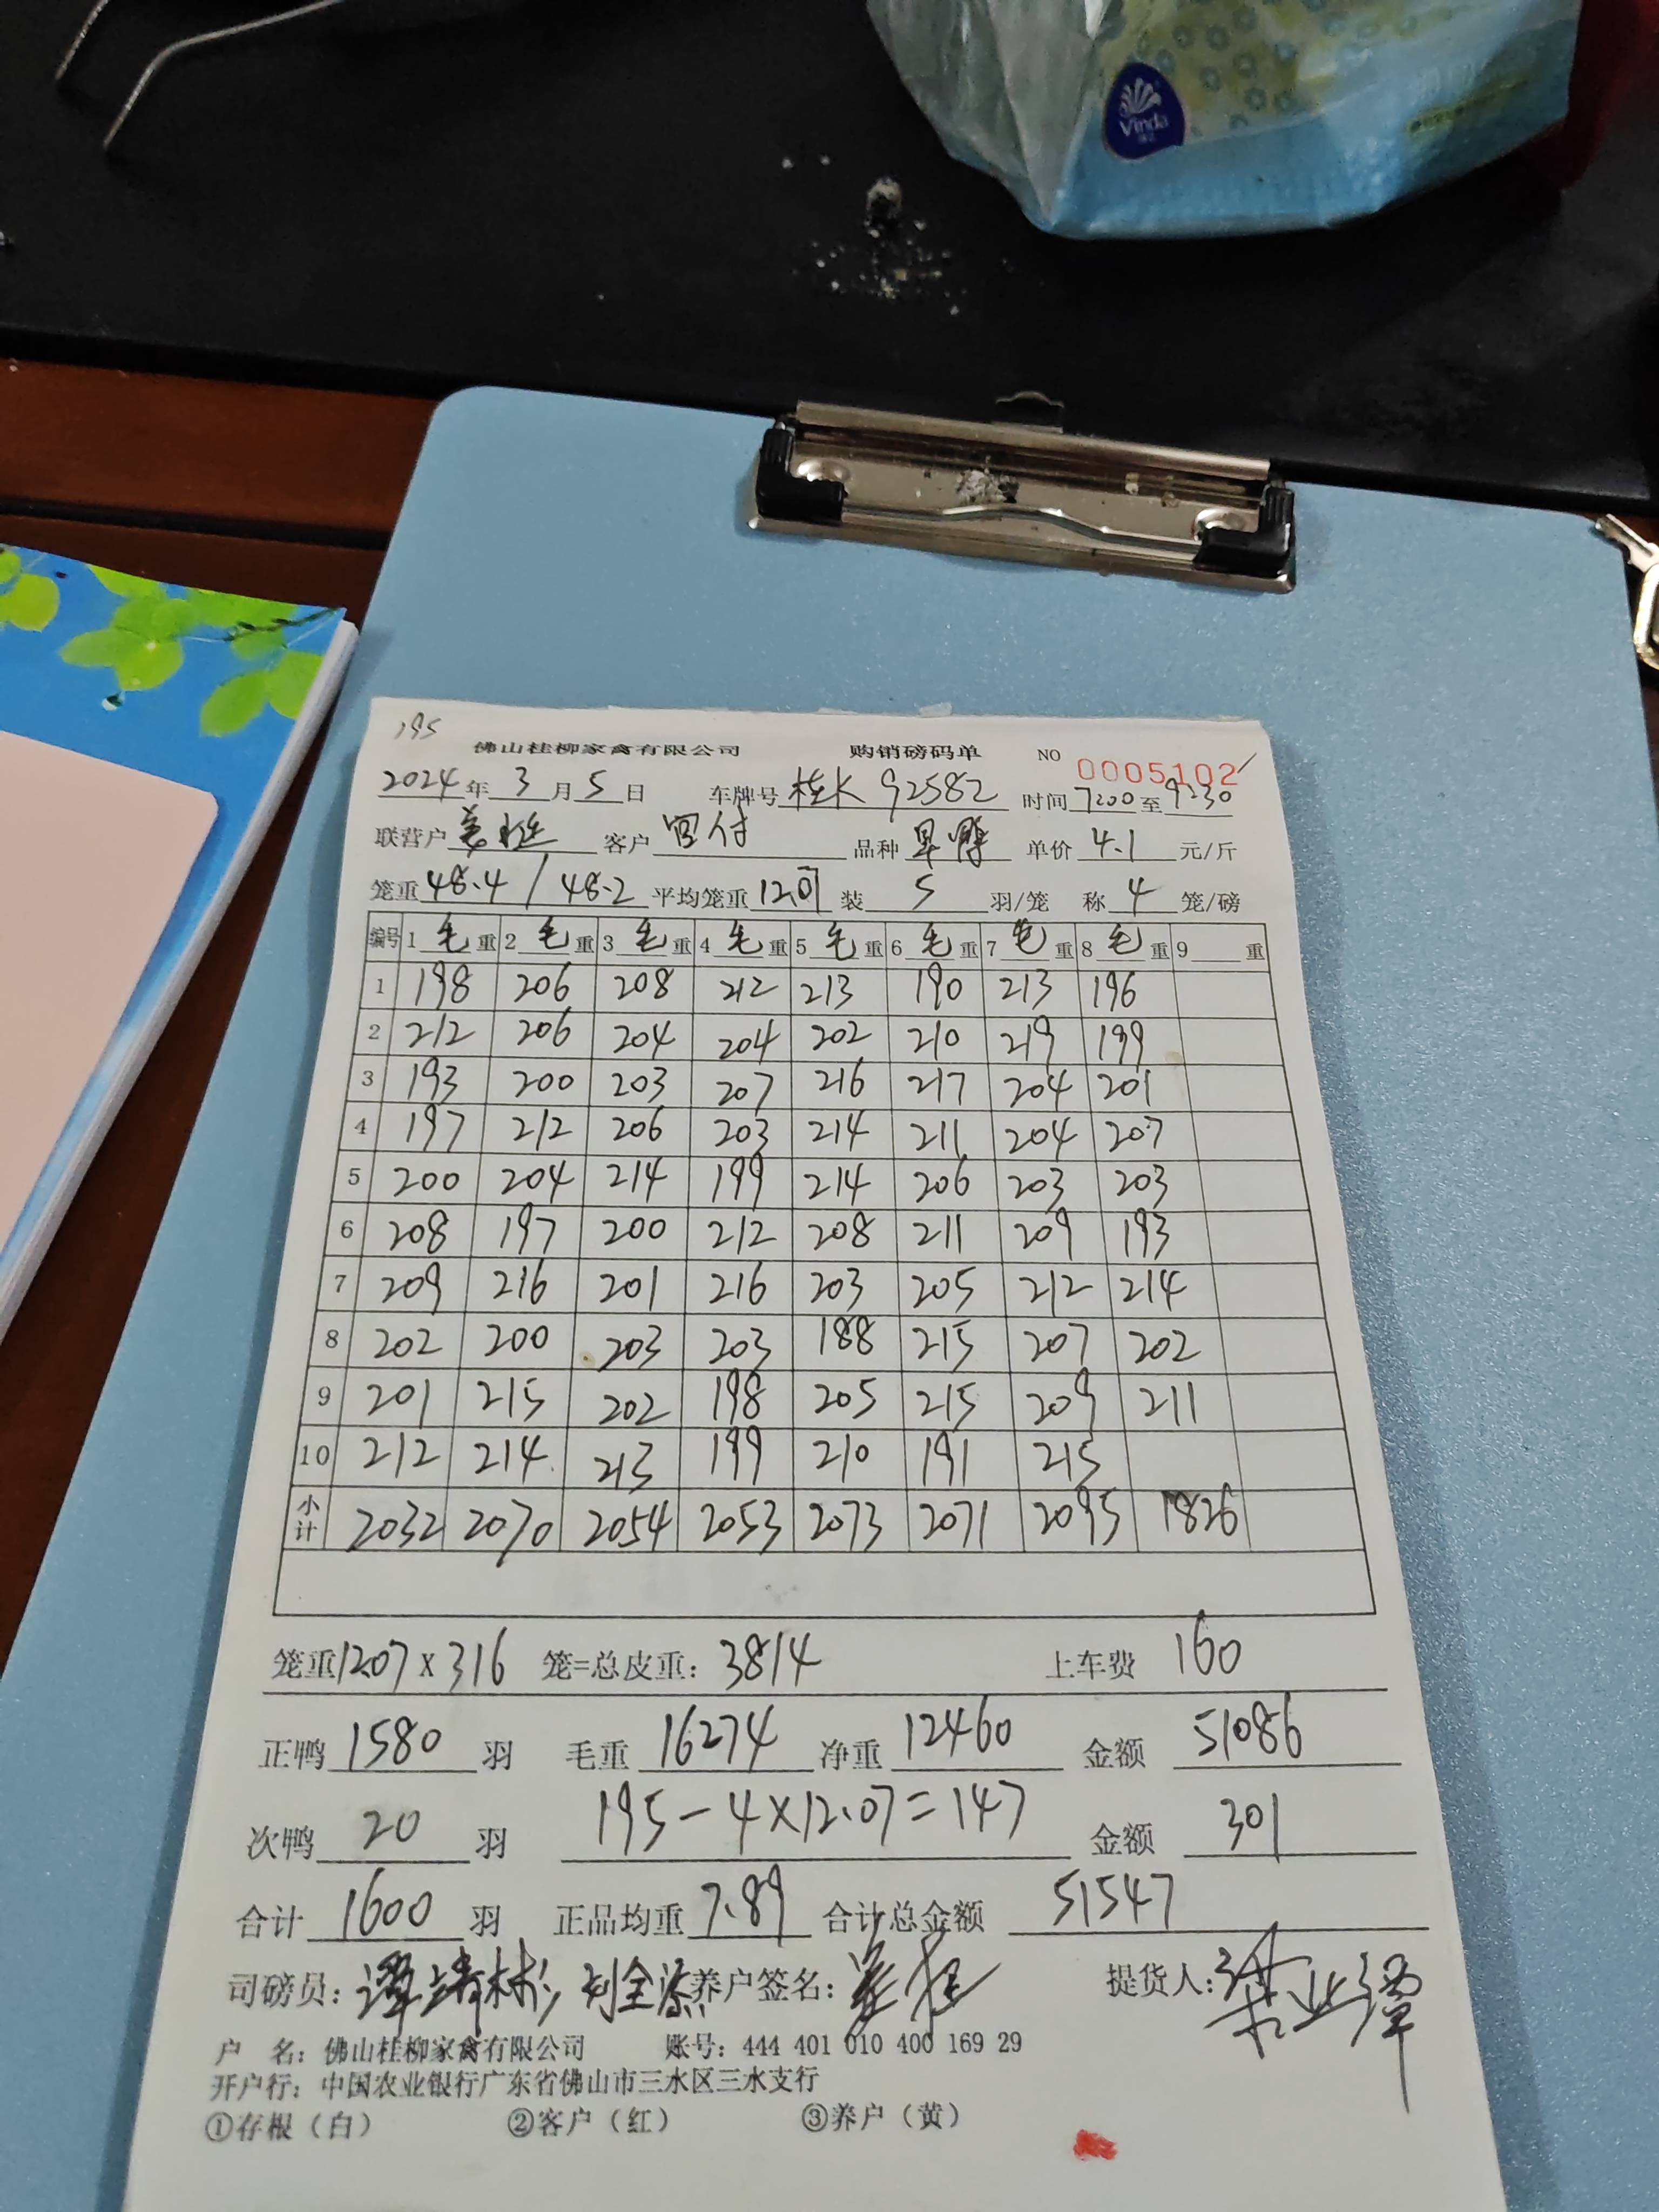 Vinda
195
佛山桂柳家禽有限公司 购销磅码单 NO 0005102
2024年 3月 5日 车牌号 桂K 92582 时间 7:00至9:30
联营户 客户 品种 单价 4.1 元/斤
笼重 48.4 / 48.2 平均笼重 12.07 装 5 羽/笼 称 4 笼/磅
编号 1 毛重 2 毛重 3 毛重 4 毛重 5 毛重 6 毛重 7 毛重 8 毛重 9 重
1 198 206 208 212 213 190 213 196
2 212 206 204 204 202 210 219 199
3 193 200 203 207 216 217 204 201
4 197 212 206 203 214 211 204 207
5 200 204 214 199 214 206 203 203
6 208 197 200 212 208 211 209 193
7 209 216 201 216 203 205 212 214
8 202 200 203 203 188 215 207 202
9 201 215 202 198 205 215 209 211
10 212 214 213 199 210 191 215
小计 2032 2070 2054 2053 2073 2071 2095 1826
笼重1207 x 316 笼=总皮重: 3814 上车费 160
正鸭 1580 羽 毛重 16274 净重 12460 金额 51086
次鸭 20 羽 195-4×12.07=147 金额 301
合计 1600 羽 正品均重 7.89 合计总金额 51547
司磅员: 养户签名: 提货人:
户 名: 佛山桂柳家禽有限公司 账号: 444 401 010 400 169 29
开户行: 中国农业银行广东省佛山市三水区三水支行
①存根(白) ②客户(红) ③养户(黄)